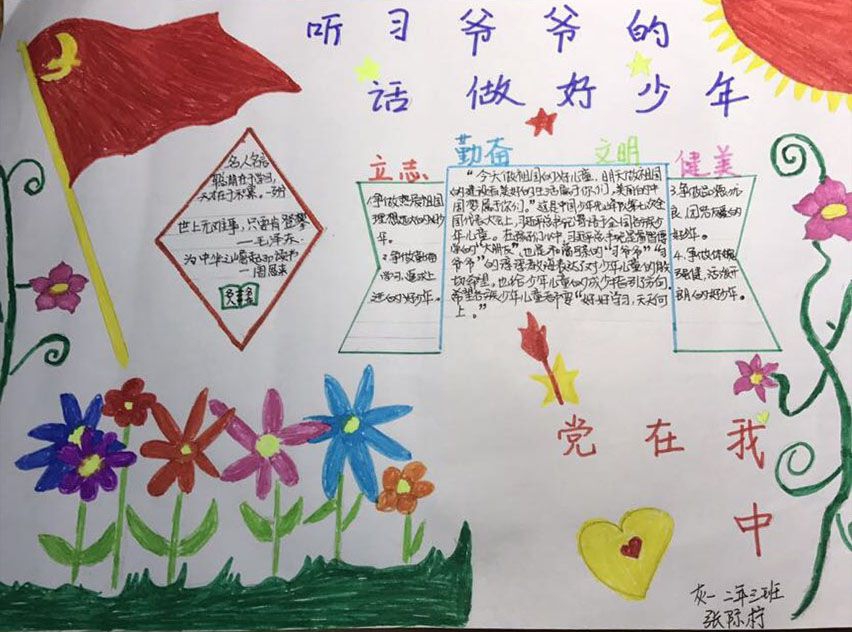 听习爷爷的
话做好少年
立志 勤奋 文明 健美
名人名言
聪明在于学习,
天才在于积累。
世上无难事,只要肯登攀
—毛泽东
为中华之崛起而读书
—周恩来
1.争做热爱祖国
理想远大的好少
年。
2.争做勤奋
学习、追求上
进的好少年。
“今天做祖国的好儿童,明天做祖国
的建设者美好的生活属于你们,美丽的中
国梦属于你们。”这是中国少年先锋队第七次全
国代表大会上,习近平总书记寄语全国各族少
年儿童。在孩子们心中,习近平总书记是
的“大朋友”,也是和蔼可亲的“习爷爷”“
爷爷”的谆谆教诲表达了对少年儿童的殷
切希望,也给少年儿童的成长指引了方向。
希望各族少年儿童
“好好学习,天天向
上。”
3.争做品德优
良、团结友爱的
好少年。
4.争做体魄
强健、活泼开
朗的好少年。
党在我
中
灰一 二年三班